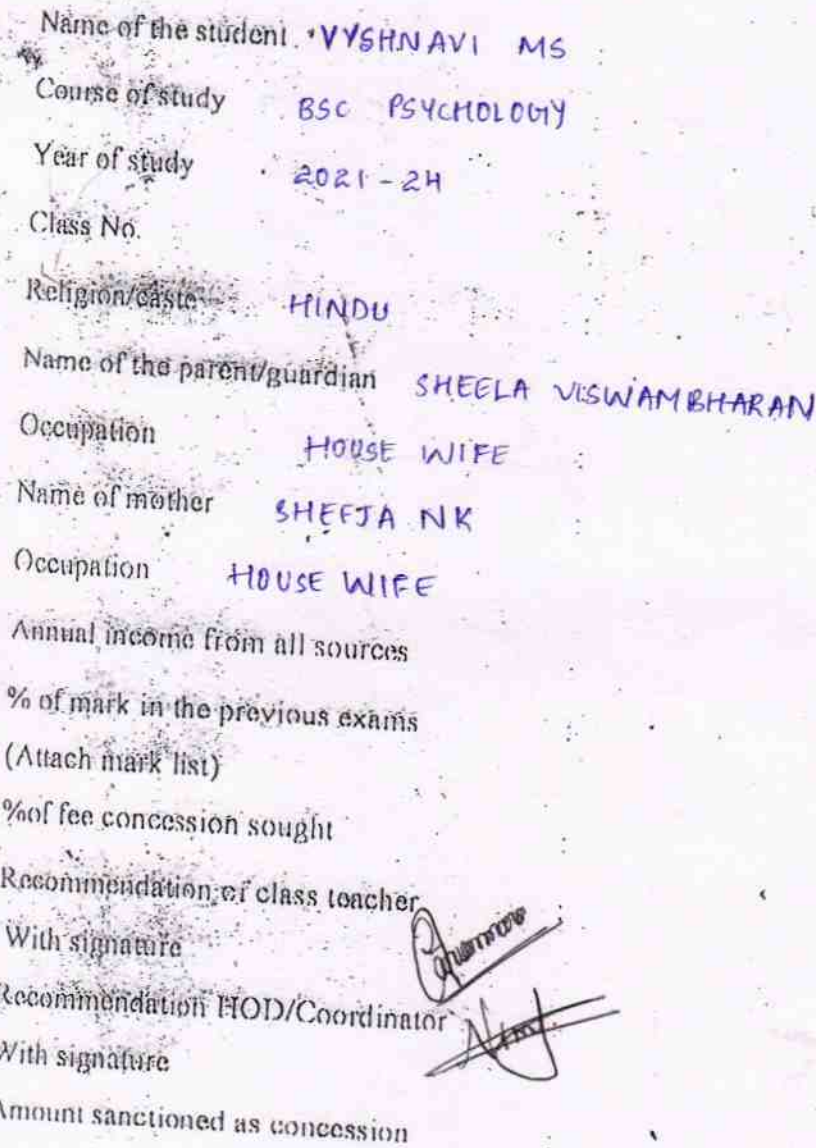 Name of the student. VYSHNAVI MS
Course of study BSC PSYCHOLOGY
Year of study 2021-24
Class No.
Religion/caste HINDU
Name of the parent/guardian SHEELA VISWAMBHARAN
Occupation HOUSE WIFE
Name of mother SHEEJA NK
Occupation HOUSE WIFE
Annual income from all sources
% of mark in the previous exams
(Attach mark list)
%of fee concession sought
Recommendation of class teacher
With signature
Recommendation HOD/Coordinator
With signature
Amount sanctioned as concession